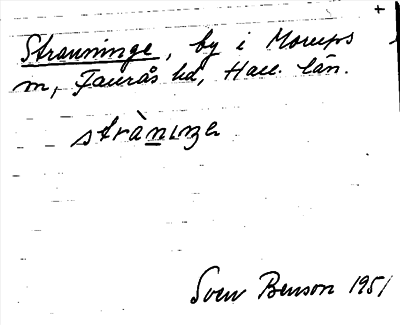 +
Strauninge, by i Morups
m, Faurås hd, Hall. län.
strànıŋe
Sven Benson 1951